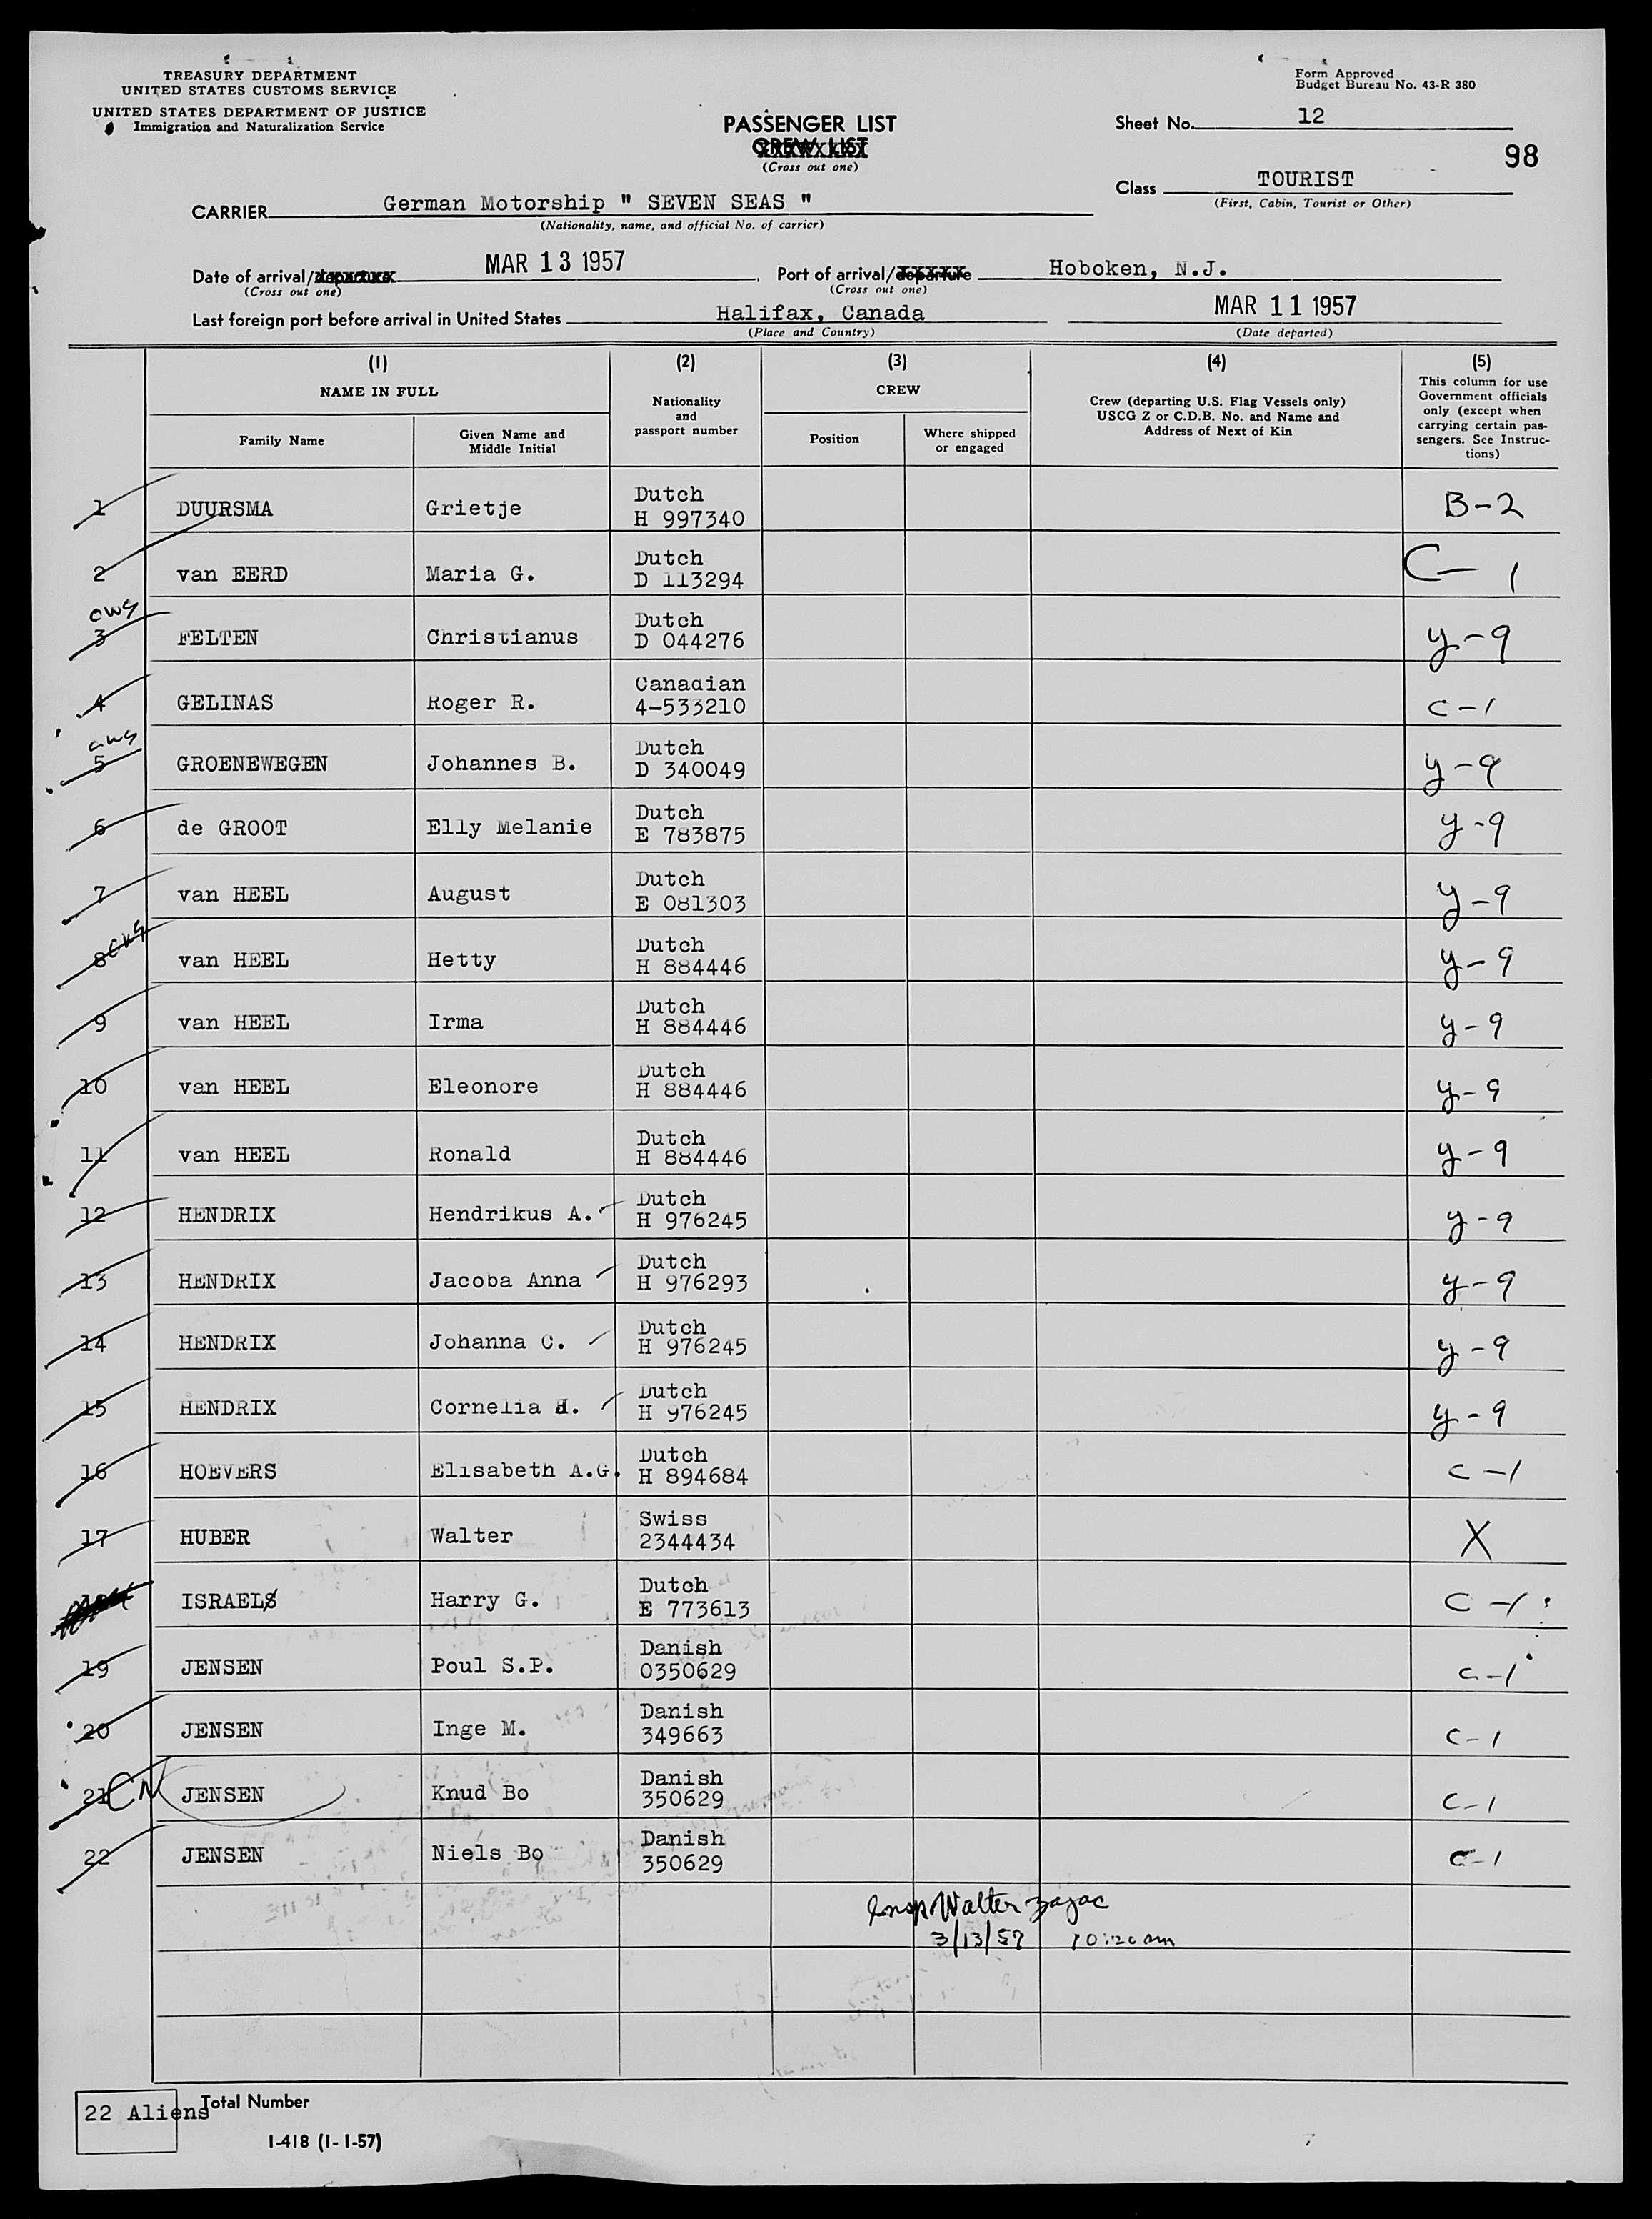 TREASURY DEPARTMENT
UNITED STATES CUSTOMS SERVICE
UNITED STATES DEPARTMENT OF JUSTICE
Immigration and Naturalization Service
Form Approved
Budget Bureau No. 43-R 380
PASSENGER LIST
CREW LIST
(Cross out one)
Sheet No. 12
98
Class TOURIST
(First, Cabin, Tourist or Other)
CARRIER German Motorship " SEVEN SEAS "
(Nationality, name, and official No. of carrier)
Date of arrival/departure MAR 13 1957, Port of arrival/departure Hoboken, N.J.
(Cross out one) (Cross out one)
Last foreign port before arrival in United States Halifax, Canada MAR 11 1957
(Place and Country) (Date departed)
(1) (2) (3) (4) (5)
NAME IN FULL
Family Name
Given Name and
Middle Initial
Nationality
and
passport number
CREW
Position
Where shipped
or engaged
Crew (departing U.S. Flag Vessels only)
USCG Z or C.D.B. No. and Name and
Address of Next of Kin
This column for use
Government officials
only (except when
carrying certain pas-
sengers. See Instruc-
tions)
1 DUURSMA Grietje Dutch H 997340 B-2
2 van EERD Maria G. Dutch D 113294 C-1
3 FELTEN Christianus Dutch D 044276 y-9
4 GELINAS Roger R. Canadian 4-533210 C-1
5 GROENEWEGEN Johannes B. Dutch D 340049 y-9
6 de GROOT Elly Melanie Dutch E 783875 y-9
7 van HEEL August Dutch E 081303 y-9
8 van HEEL Hetty Dutch H 884446 y-9
9 van HEEL Irma Dutch H 884446 y-9
10 van HEEL Eleonore Dutch H 884446 y-9
11 van HEEL Ronald Dutch H 884446 y-9
12 HENDRIX Hendrikus A. Dutch H 976245 y-9
13 HENDRIX Jacoba Anna Dutch H 976293 y-9
14 HENDRIX Johanna C. Dutch H 976245 y-9
15 HENDRIX Cornelia H. Dutch H 976245 y-9
16 HOEVERS Elisabeth A.G. Dutch H 894684 C-1
17 HUBER Walter Swiss 2344434 X
ISRAELS Harry G. Dutch E 773613 C-1
19 JENSEN Poul S.P. Danish 0350629 C-1
20 JENSEN Inge M. Danish 349663 C-1
21 CN JENSEN Knud Bo Danish 350629 C-1
22 JENSEN Niels Bo Danish 350629 C-1
Insp Walter Zajac
3/13/57 10:20 am
22 Aliens Total Number
I-418 (1-1-57)